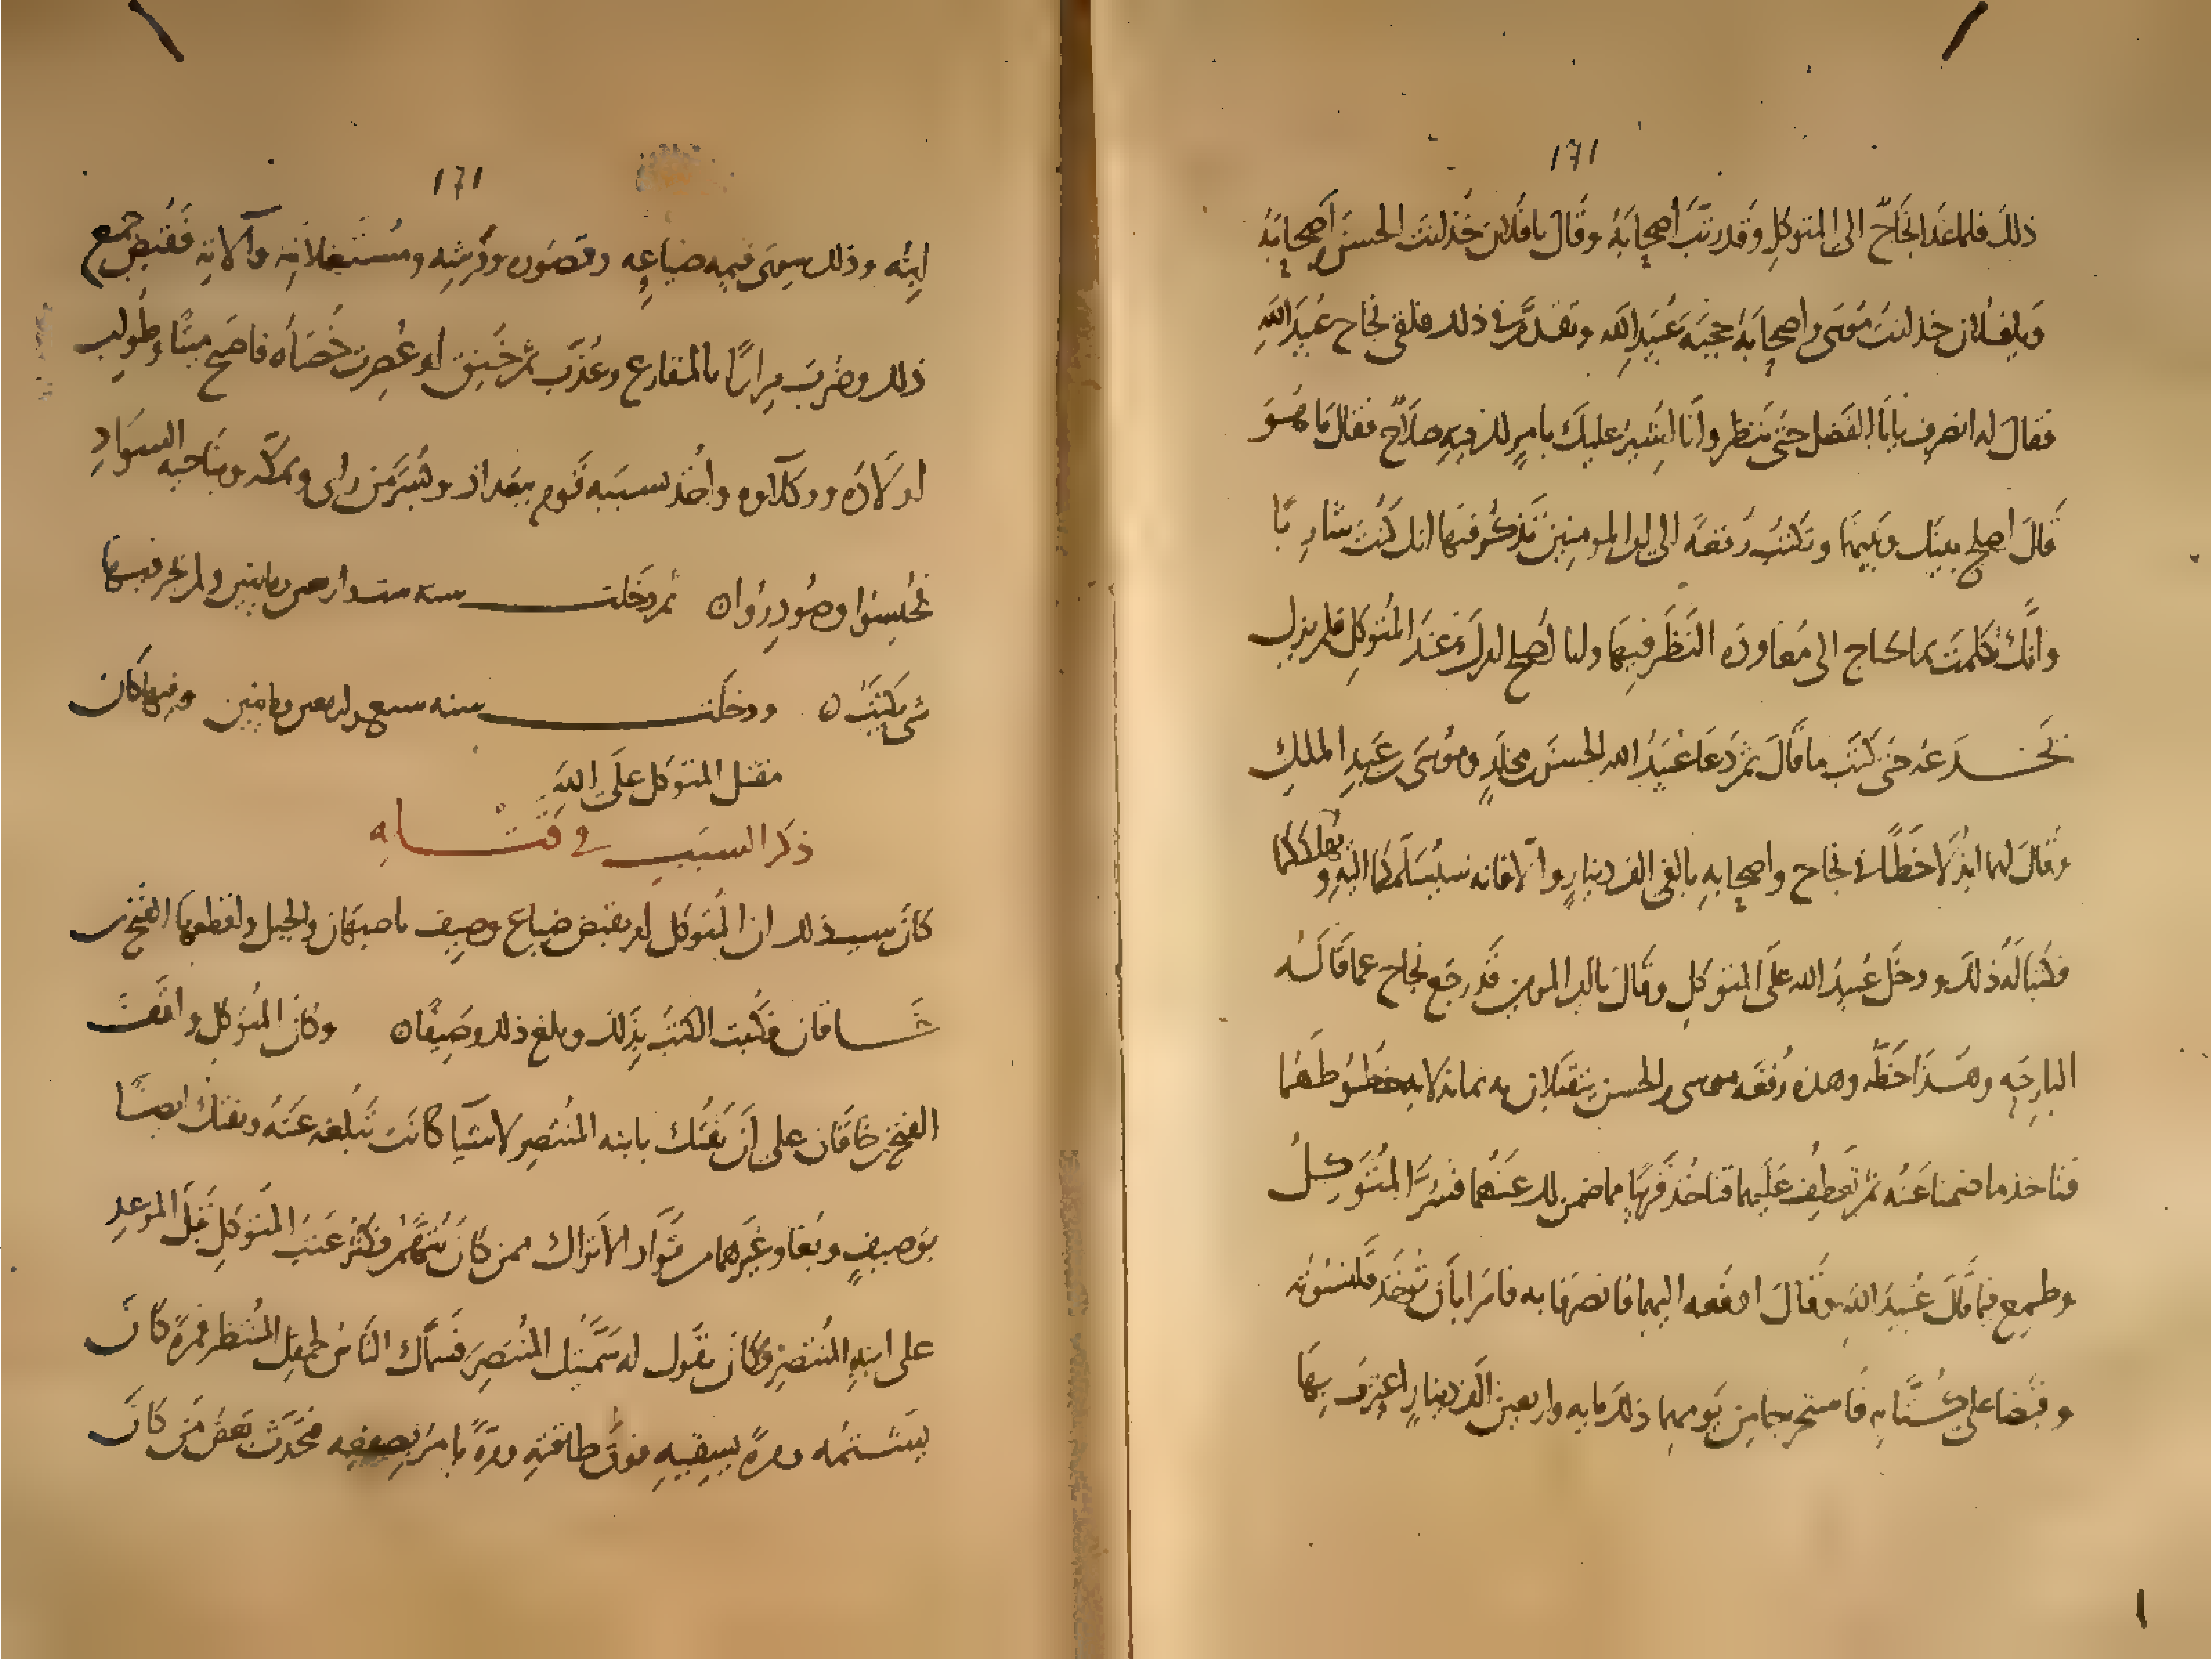 ١٦١
ذلك فلما غدا نجاح الى المتوكل وقد رتب اصحابه وقال يا فلان خذ انت الحسن واصحابه
ويا فلان خذ انت موسى واصحابه حجبه عبيد الله وتقدم في ذلك فلقى نجاح عبيد الله
فقال له انصرف يا ابا الفضل حتى ننظر وانا اشير عليك بامر لك فيه صلاح فقال ما هو
قال اصلح بينك وبينهما وتكتب رقعة الى امير المومنين تذكر فيها انك كنت شاربا
وانك تكلمت بما يحتاج الى معاودة النظر فيها وانا اصلح الامر عند المتوكل فلم يزل
يخدعه حتى كتب ما قال ثم دعا عبيد الله الحسن بن مخلد وموسى بن عبد الملك
وقال لهما ابذلا خطا في نجاح واصحابه بالفي الف دينار والا فانه سيسلمكما اليه و
فكتبا له ذلك ودخل عبيد الله على المتوكل وقال يا امير المومنين قد رجع نجاح عما قاله
البارحه وهذا خطه وهذه رقعه موسى والحسن يتقبلان به بما بذلا به خطوطهما
فتاخذ ما ضمنا عنه ثم تعطف عليهما فتاخذ قريبا مما ضمن لك عنهما فسر المتوكل
وطمع فيما قال عبيد الله وقال ادفعه اليهما فانصرفا به فامرا باخذ قلنسوته
وقبضا على كتابه فاستخرجا من يومهما ذلك مايه واربعين الف دينار اعترف بها
١٦١
ابنه وذلك سوى قيمه ضياعه وقصوره وفرشه ومستغلاته وآلاته فقبض جميع
ذلك وضرب مرارا بالمقارع وعذب ثم خنق او عصرت خصاه فاصبح ميتا وطولب
اولاده ووكلاوه واخذ بسببه قوم ببغداذ وبسر من راى وبمكه وبناحيه السواد
فحبسوا وصودروا ه ثم دخلت سنه ست واربعين وماىتين ولم يجر فيها
شي يكتب ه ودخلت سنه سبع واربعين ومايتين وفيها كان
مقتل المتوكل على الله
ذكر السبب في قتله
كان سبب ذلك ان المتوكل امر بقبض ضياع وصيف باصبهان والجبل واقطعها الفتح بن
خاقان فكتبت الكتب بذلك وبلغ ذلك وصيفا ه وكان المتوكل وافقت
الفتح بن خاقان على ان يفتك بابنه المنتصر لاشيا كانت تبلغه عنه ويفتك ايضا
بوصيف وبغا وغيرهما من قواد الاتراك ممن كان يتهم فكثر عتب المتوكل قبل الموعد
على ابنه المنتصر وكان يقول له سميتك المنتصر فسماك الناس لحمقك المنتظر فمرة كان
يشتمه ومرة يسقيه فوق طاقته ومرة يامر بصفعه فتحدث بعض من كان